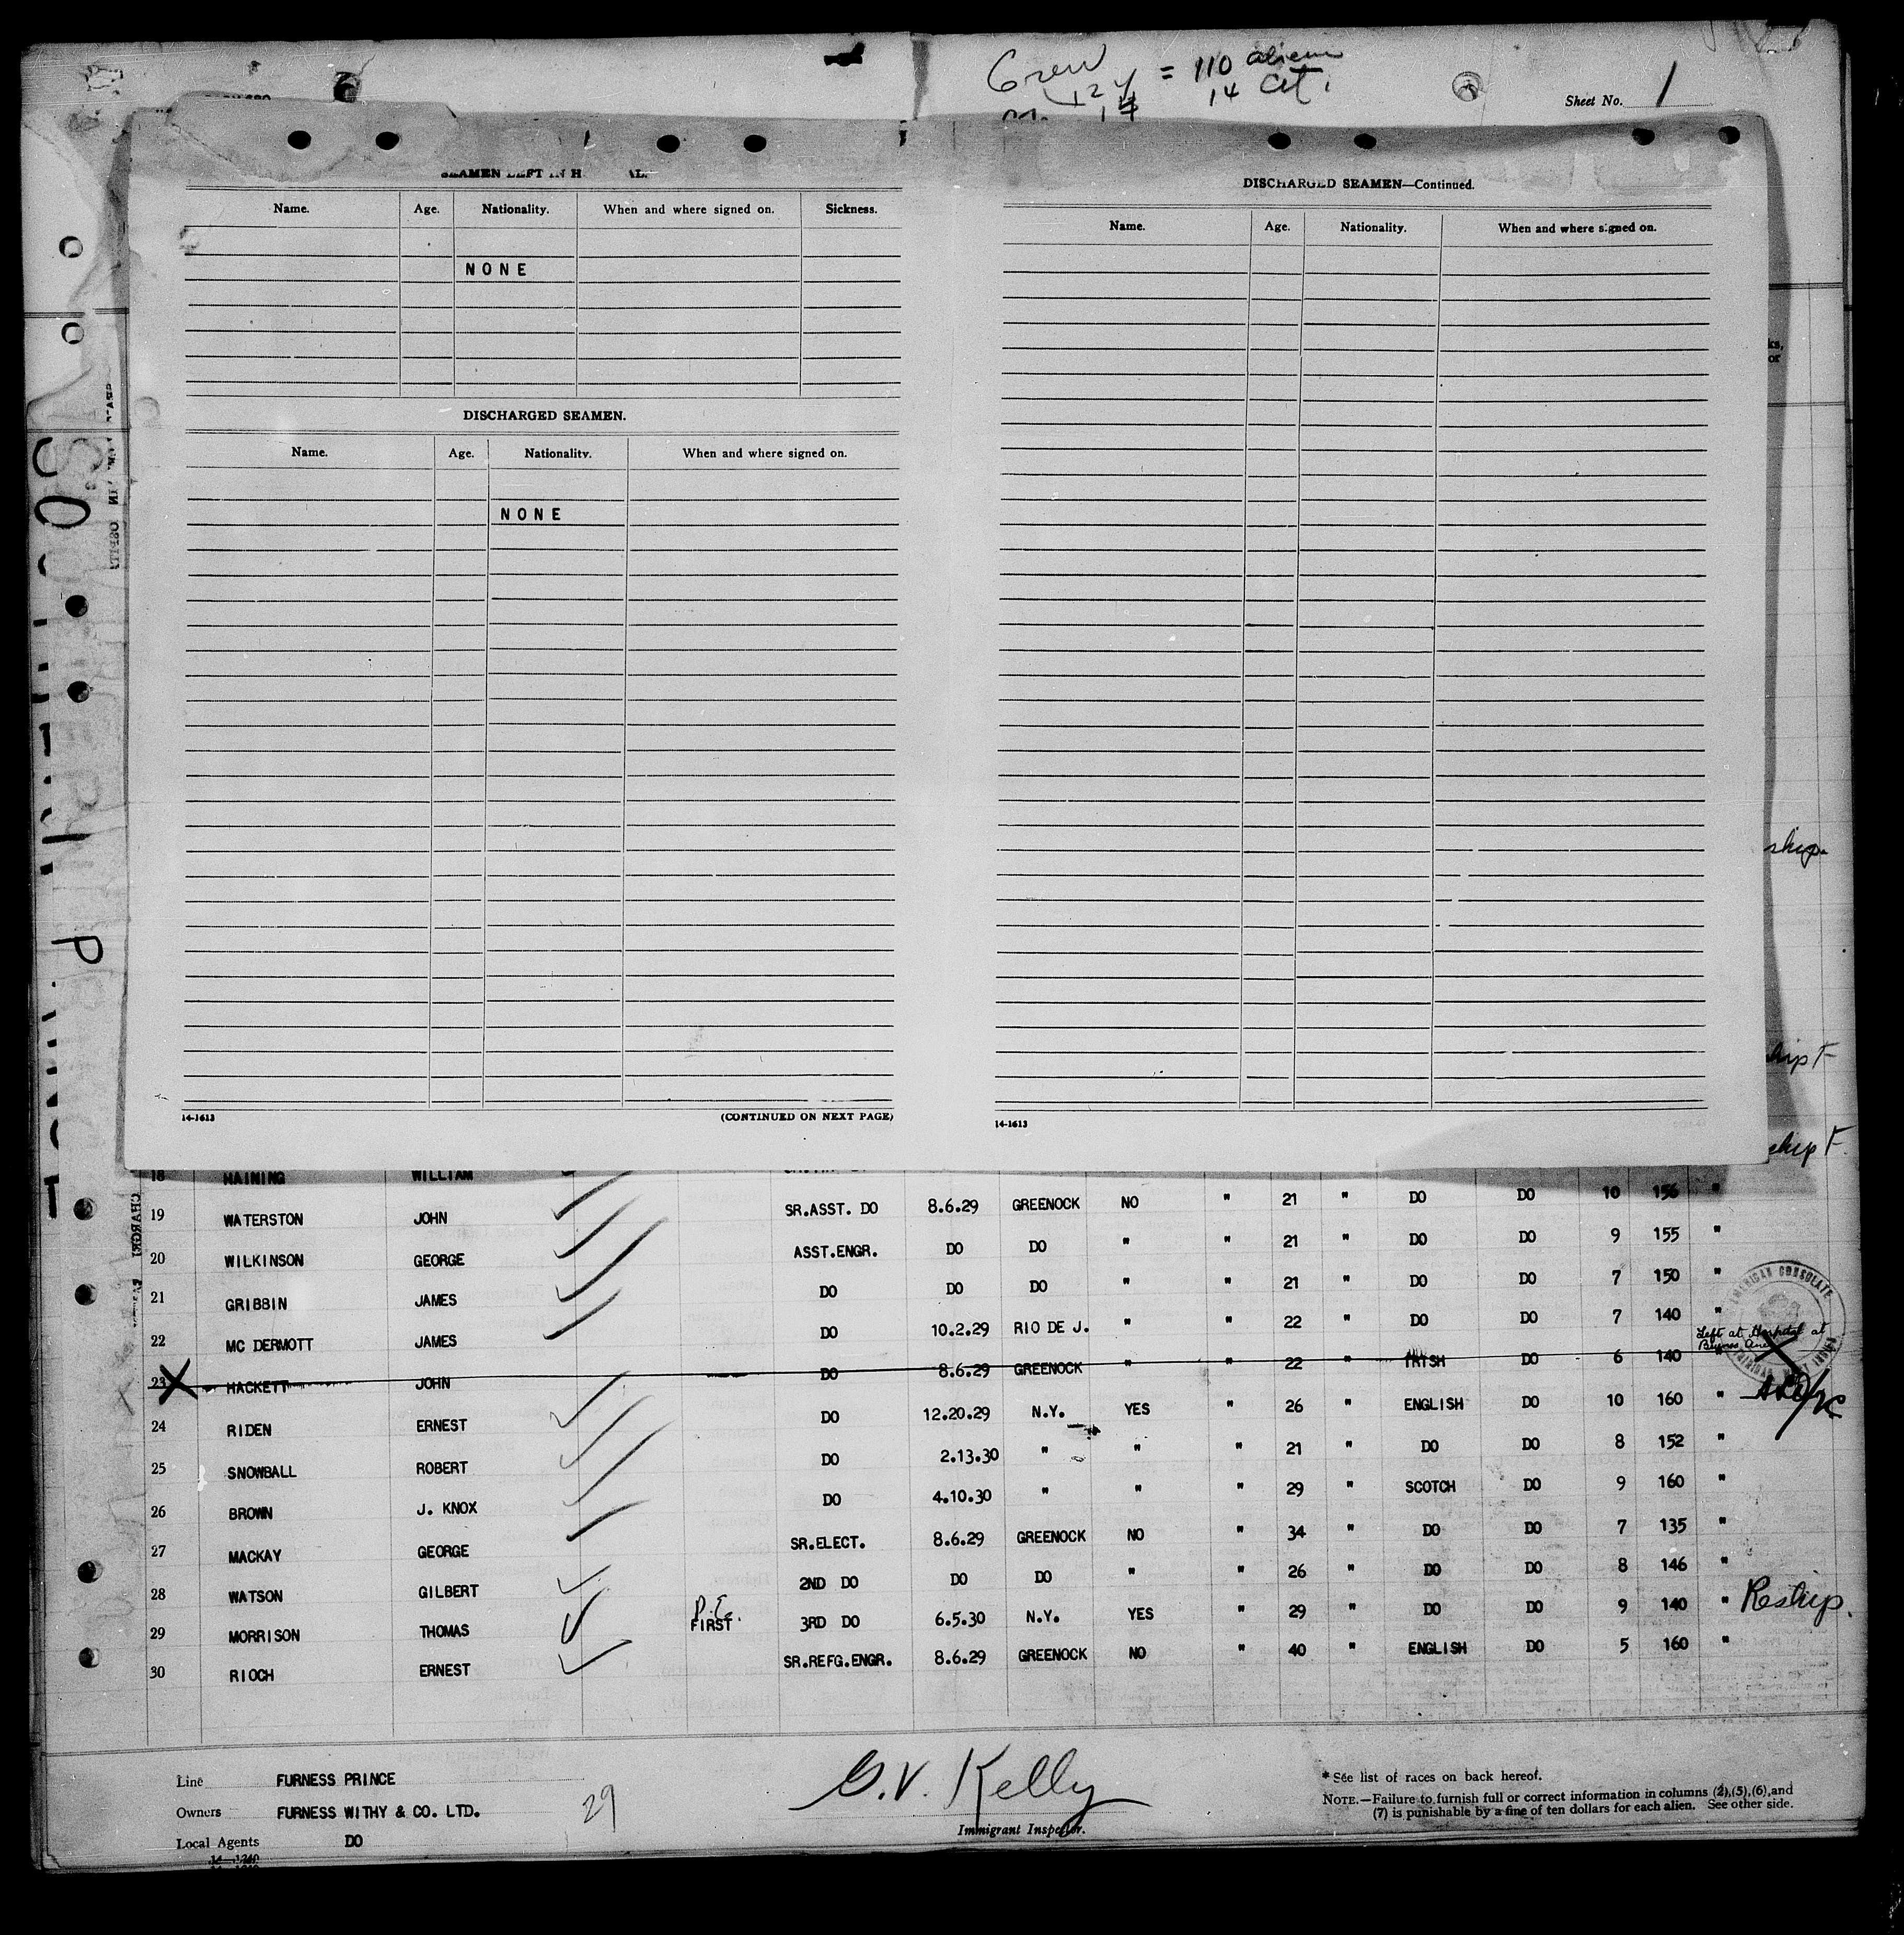 Crew
124 = 110 aliens
14 Cit.
Sheet No. 1
SEAMEN LEFT IN H AL.
Name. Age. Nationality. When and where signed on. Sickness.
NONE
DISCHARGED SEAMEN.
Name. Age. Nationality. When and where signed on.
NONE
14-1613 (CONTINUED ON NEXT PAGE)
DISCHARGED SEAMEN—Continued.
Name. Age. Nationality. When and where signed on.
14-1613
ks,
or
ship.
ship F
ship F.
18 HAINING WILLIAM
19 WATERSTON JOHN SR.ASST. DO 8.6.29 GREENOCK NO " 21 " DO DO 10 156 "
20 WILKINSON GEORGE ASST.ENGR. DO DO " " 21 " DO DO 9 155 "
21 GRIBBIN JAMES DO DO DO " " 21 " DO DO 7 150 "
22 MC DERMOTT JAMES DO 10.2.29 RIO DE J. " " 22 " DO DO 7 140 "
23 HACKETT JOHN DO 8.6.29 GREENOCK " " 22 " IRISH DO 6 140 "
Left at Hospital at
Buenos Aires
24 RIDEN ERNEST DO 12.20.29 N.Y. YES " 26 " ENGLISH DO 10 160 "
25 SNOWBALL ROBERT DO 2.13.30 " " " 21 " DO DO 8 152 "
26 BROWN J. KNOX DO 4.10.30 " " " 29 " SCOTCH DO 9 160 "
27 MACKAY GEORGE SR.ELECT. 8.6.29 GREENOCK NO " 34 " DO DO 7 135 "
28 WATSON GILBERT 2ND DO DO DO " " 26 " DO DO 8 146 "
29 MORRISON THOMAS FIRST 3RD DO 6.5.30 N.Y. YES " 29 " DO DO 9 140 " Reship.
30 RIOCH ERNEST SR.REFG.ENGR. 8.6.29 GREENOCK NO " 40 " ENGLISH DO 5 160 "
AMERICAN CONSULATE
Line FURNESS PRINCE
Owners FURNESS WITHY & CO. LTD.
Local Agents DO
14-1240
29
G.V. Kelly
Immigrant Inspector.
* See list of races on back hereof.
NOTE.—Failure to furnish full or correct information in columns (2),(5),(6),and
(7) is punishable by a fine of ten dollars for each alien. See other side.